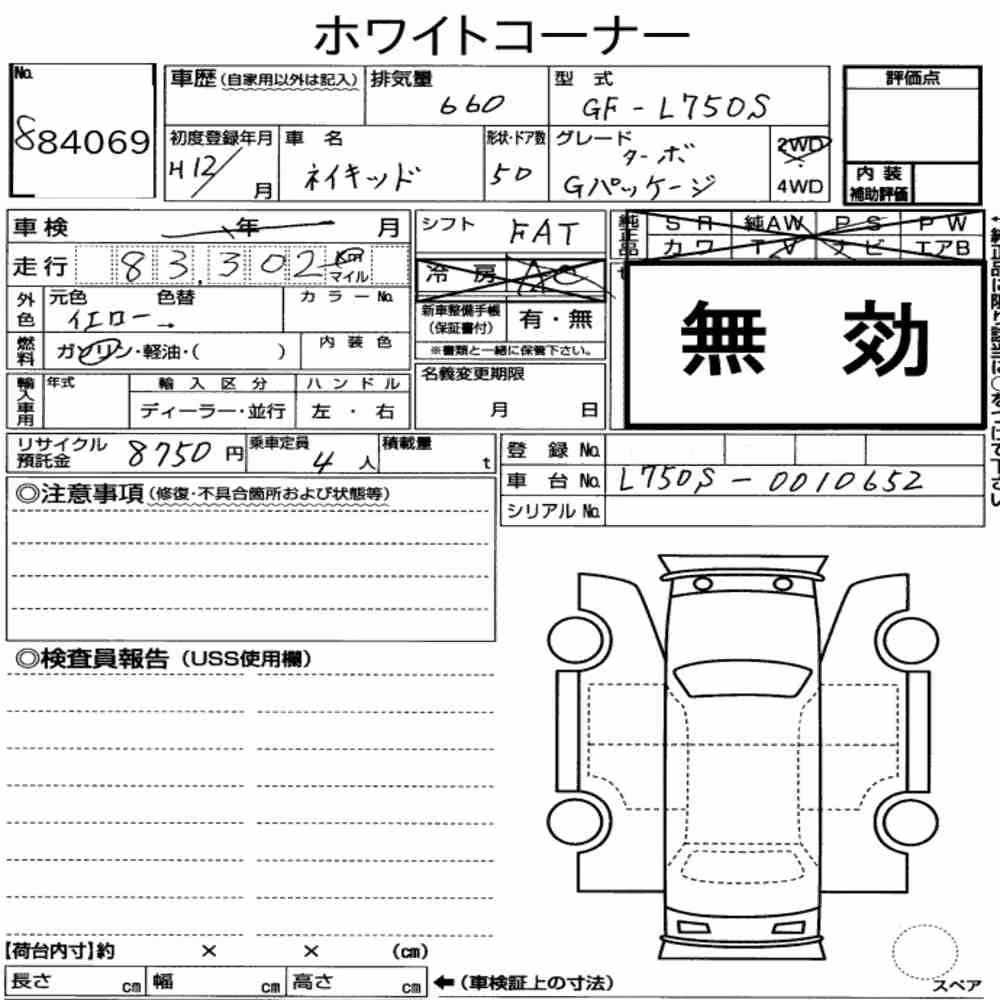 ホワイトコーナー
No. 884069
車歴(自家用以外は記入) 排気量 660 型式 GF-L750S
初度登録年月 H12/ 月 車名 ネイキッド 形状・ドア数 5D グレード ターボ Gパッケージ 2WD 4WD
評価点
内装補助評価
車検 年 月
走行 83,302 Km マイル
外色 元色 イエロー 色替 → カラーNo.
燃料 ガソリン・軽油・( ) 内装色
輸入車用 年式 輸入区分 ハンドル
ディーラー・並行 左・右
シフト FAT
冷房 AC
新車整備手帳(保証書付) 有・無
※書類と一緒に保管下さい。
名義変更期限
月 日
純正品 SR 純AW PS PW
カワ TV ナビ エアB
無効
リサイクル預託金 8750円 乗車定員 4人 積載量 t
登録No.
車台No. L750S-0010652
シリアルNo.
◎注意事項(修復・不具合箇所および状態等)
◎検査員報告(USS使用欄)
【荷台内寸】約 × × (cm)
長さ cm 幅 cm 高さ cm ←(車検証上の寸法)
スペア